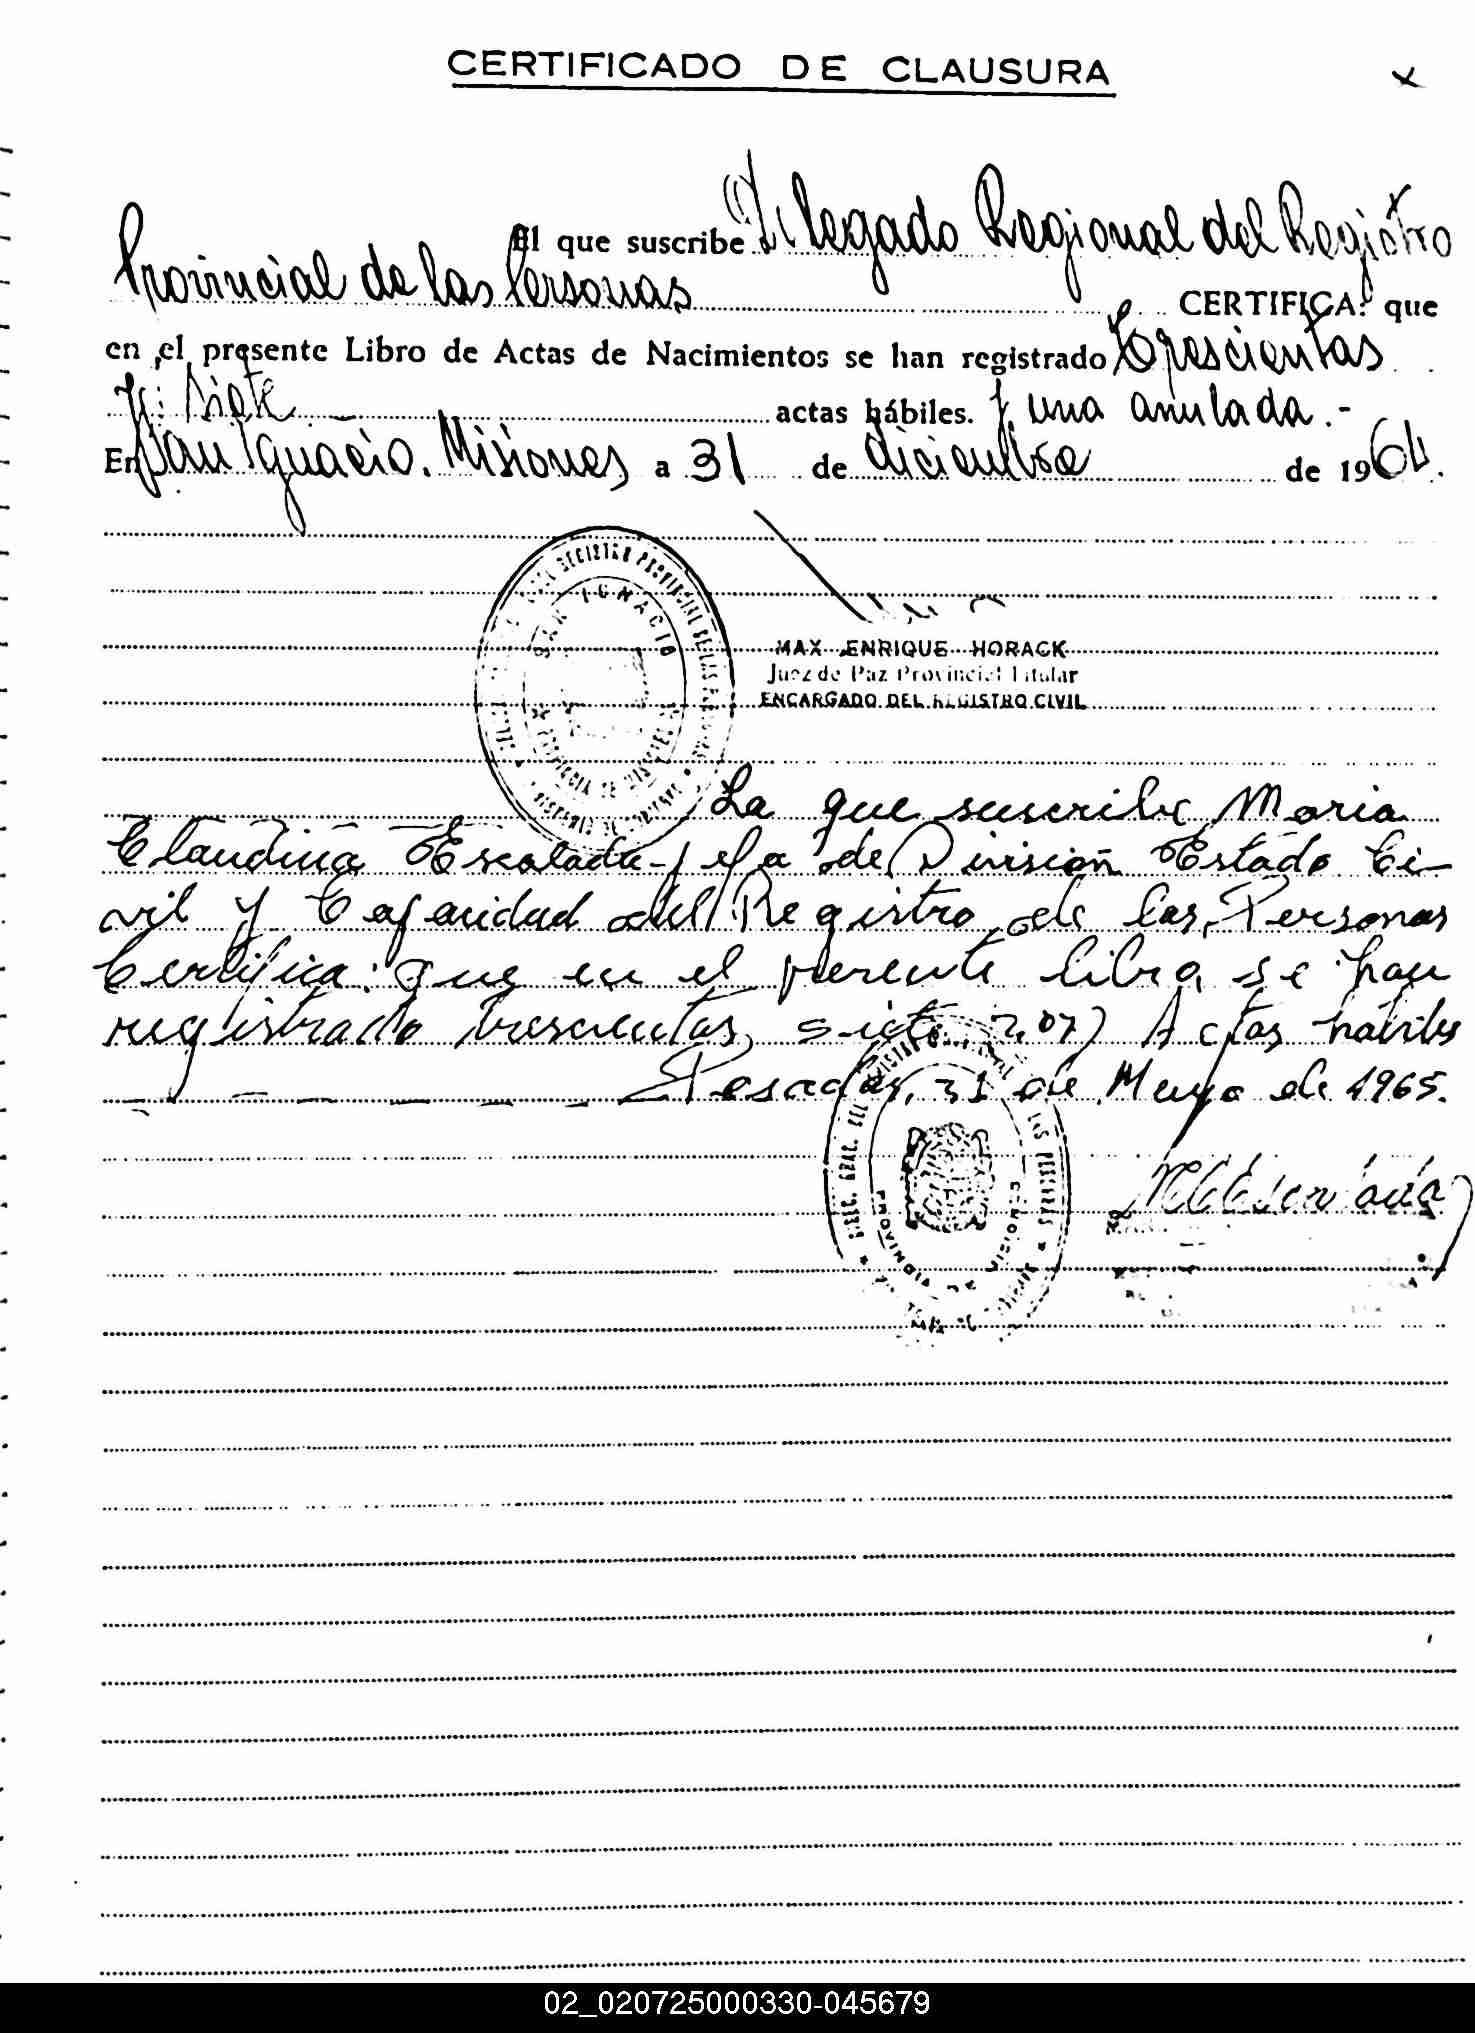 CERTIFICADO DE CLAUSURA
El que suscribe Delegado Regional del Registro
Provincial de las Personas CERTIFICA: que
en el presente Libro de Actas de Nacimientos se han registrado Trescientas
y siete actas hábiles. y una anulada.-
En San Ignacio. Misiones a 31 de diciembre de 1964.
SAN IGNACIO
MAX ENRIQUE HORACK
Juez de Paz Provincial Titular
ENCARGADO DEL REGISTRO CIVIL
La que suscribe Maria
Claudina Escalada Jefa de Division Estado Ci-
vil y Capacidad del Registro de las Personas
Certifica: que en el presente libro se han
registrado trescientas siete 307) Actas hábiles
Posadas, 31 de Mayo de 1965.
02_020725000330-045679